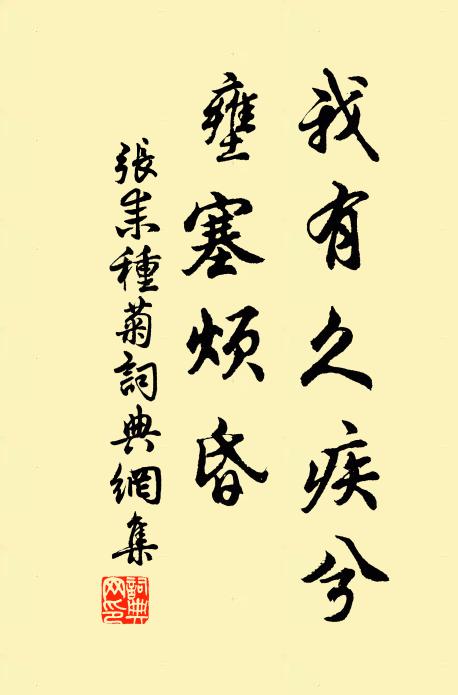 我有久疾兮
壅塞烦昏
張耒種菊詞典網集
詞典网印